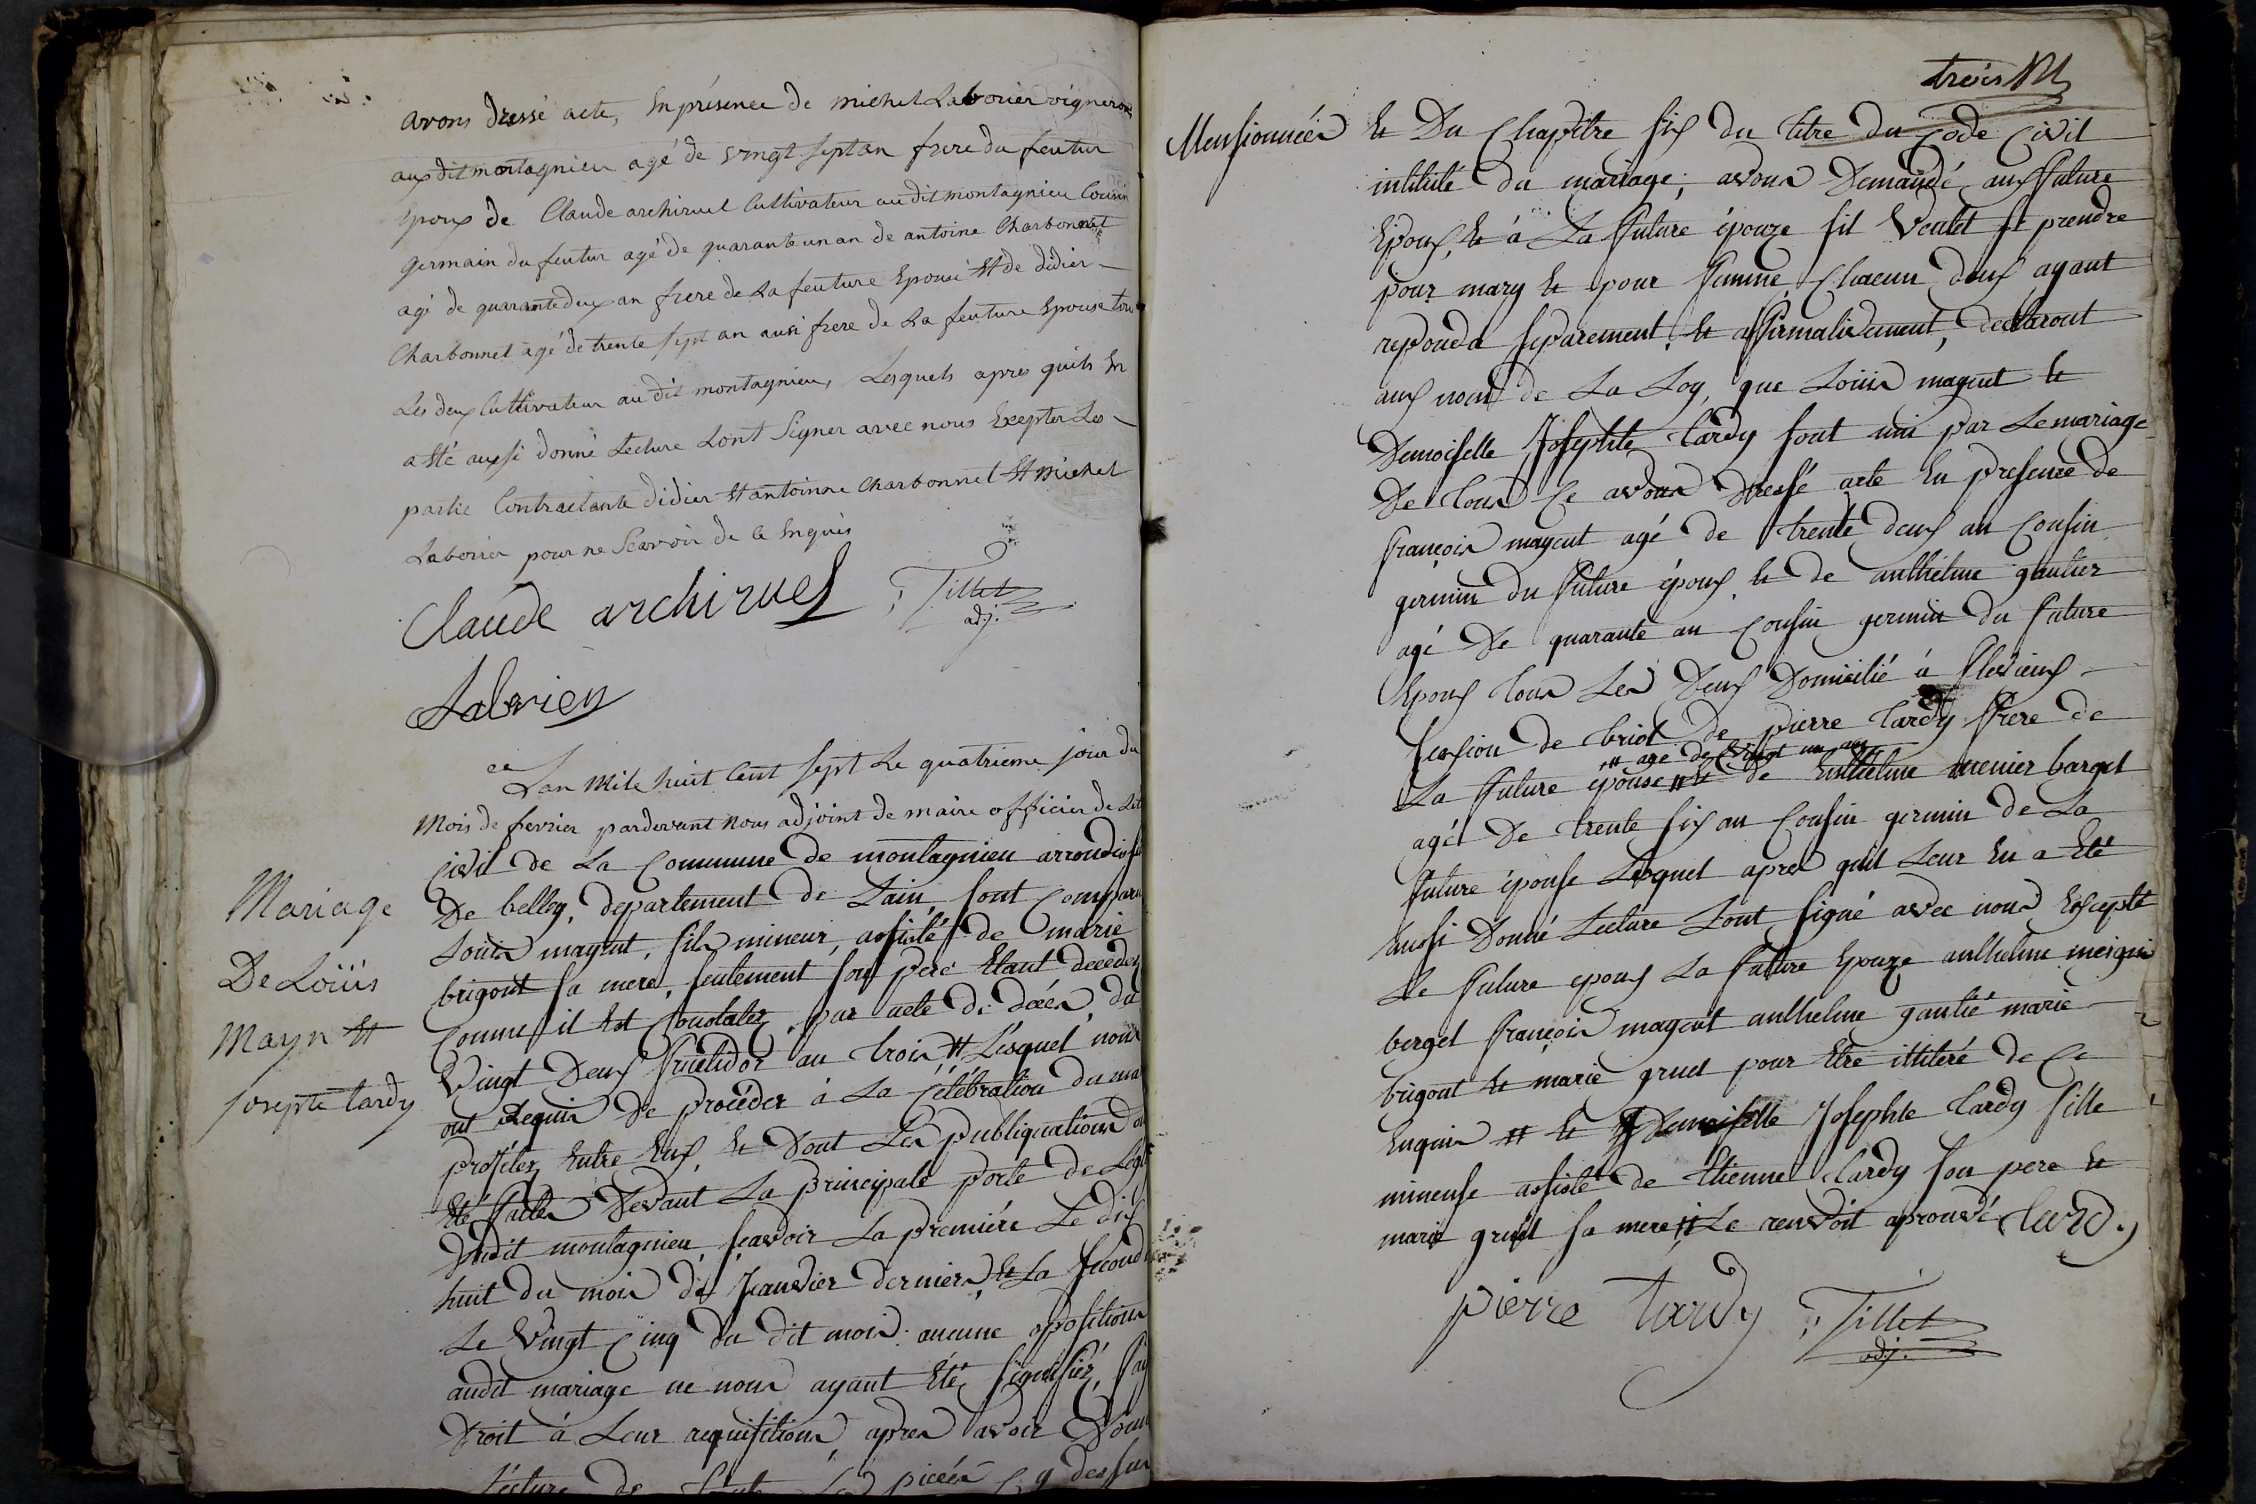 avons dressé acte, En présence de michel Laborier vigneron
aux dit montagnieu agé de vingt sept an frere du feutur
Epoux de Claude archiruel Cultivateur au dit montagnieu Cousin
germain du feutur agé de quarante un an de antoine Charbonnet
agé de quarante deux an frere de La feuture Epouse Et de didier
Charbonnet agé de trente sept an ausi frere de La feuture Epouse tous
Les deux Cultivateur au dit montagnieu, Lesquels apres quils En
a Eté aussi donné Lecture Lont Signer avec nous Excepter Les
partie Contractante didier Et antoinne Charbonnet Et Michel
Laborier pour ne Scavoir de ce Enquis
Claude archiruel Tillet
adj.
Labrien
Mariage
De Loüis
Mayn Et
josephte tardy
Lan Mile huit Cent sept Le quatrieme jour du
Mois de fevrier pardevant Nous adjoint de maire officier de Let
Civil de La Commune de montagnieu arrondiss
De belley, departement de Lain, sont Compar
Louis mayeut, fils mineur, assisté de marie
brigout sa mere, seulement son pere Etant decedez
Comme il Est Constatez, par acte de décés, du
Vingt Deux fructidor an trois # Lesquel nous
ont Requis De proceder à La Célébration du ma
projetez Entre Eux, Et Dont Les publiquations on
Eté faites Devant La principale porte de Legl
Dudit montagnieu, sçavoir La premiére Le dix
huit du mois de Jeanvier derniers, Et La second
Le Vingt Cinq du dit mois. aucune opositions
audit mariage ne nous ayant Eté signifiér, fai
Droit à Leur requisitions, apres avoir Donn
Lecture de toute Les piéces Cy dessus
trois
Mensionnées Et Du Chapitre six du titre du Code Civil
intitulé du mariage; avons Demandé aux future
Epoux, Et à La future épouze sil Veulet se prendre
pour mary Et pour femme, Chacun deux ayant
repondu separement, Et affirmativement, declaront
aux nom de La Loy, que Loüis mayeut Et
Demoiselle Josephte tardy sont uni par Le mariage
De tous Ce avons Dressé acte En presence de
françois mayeut agé de trente deux an Cousin
germin du future époux, Et de anthelme gautier
agé De quarante an Cousin germin du future
Epoux tous Les Deux Domicilié à flevieux
session de briot De pierre tardy frere de
# agé de Vingt un an
La future épouse # Et de Enthelme meunier barget
agé De trente six an Cousin germin de La
future épouse Lesquel apres quil Leur En a Eté
aussi Donné Lecture Lont signé avec nous Excepté
Le future epoux La future Epouze anthelme meignie
berget françois mayeut anthelme gautié marie
brigout Et marie gruet pour Etre illiteré de Ce
Enquis # Et Demoiselle Josephte tardy fille
mineuse assisté de Etienne tardy son pere Et
marie gruet sa mere # Le renvoit aprouvé tardy
pierre tardy Tillet
adj.